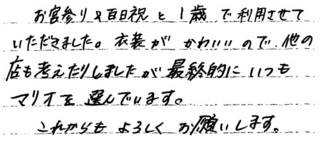 お宮参り&百日祝と1歳で利用させて
いただきました。衣装がかわいいので、他の
店も考えたりしましたが最終的にいつも
マリオを選んでいます。
これからもよろしくお願いします。